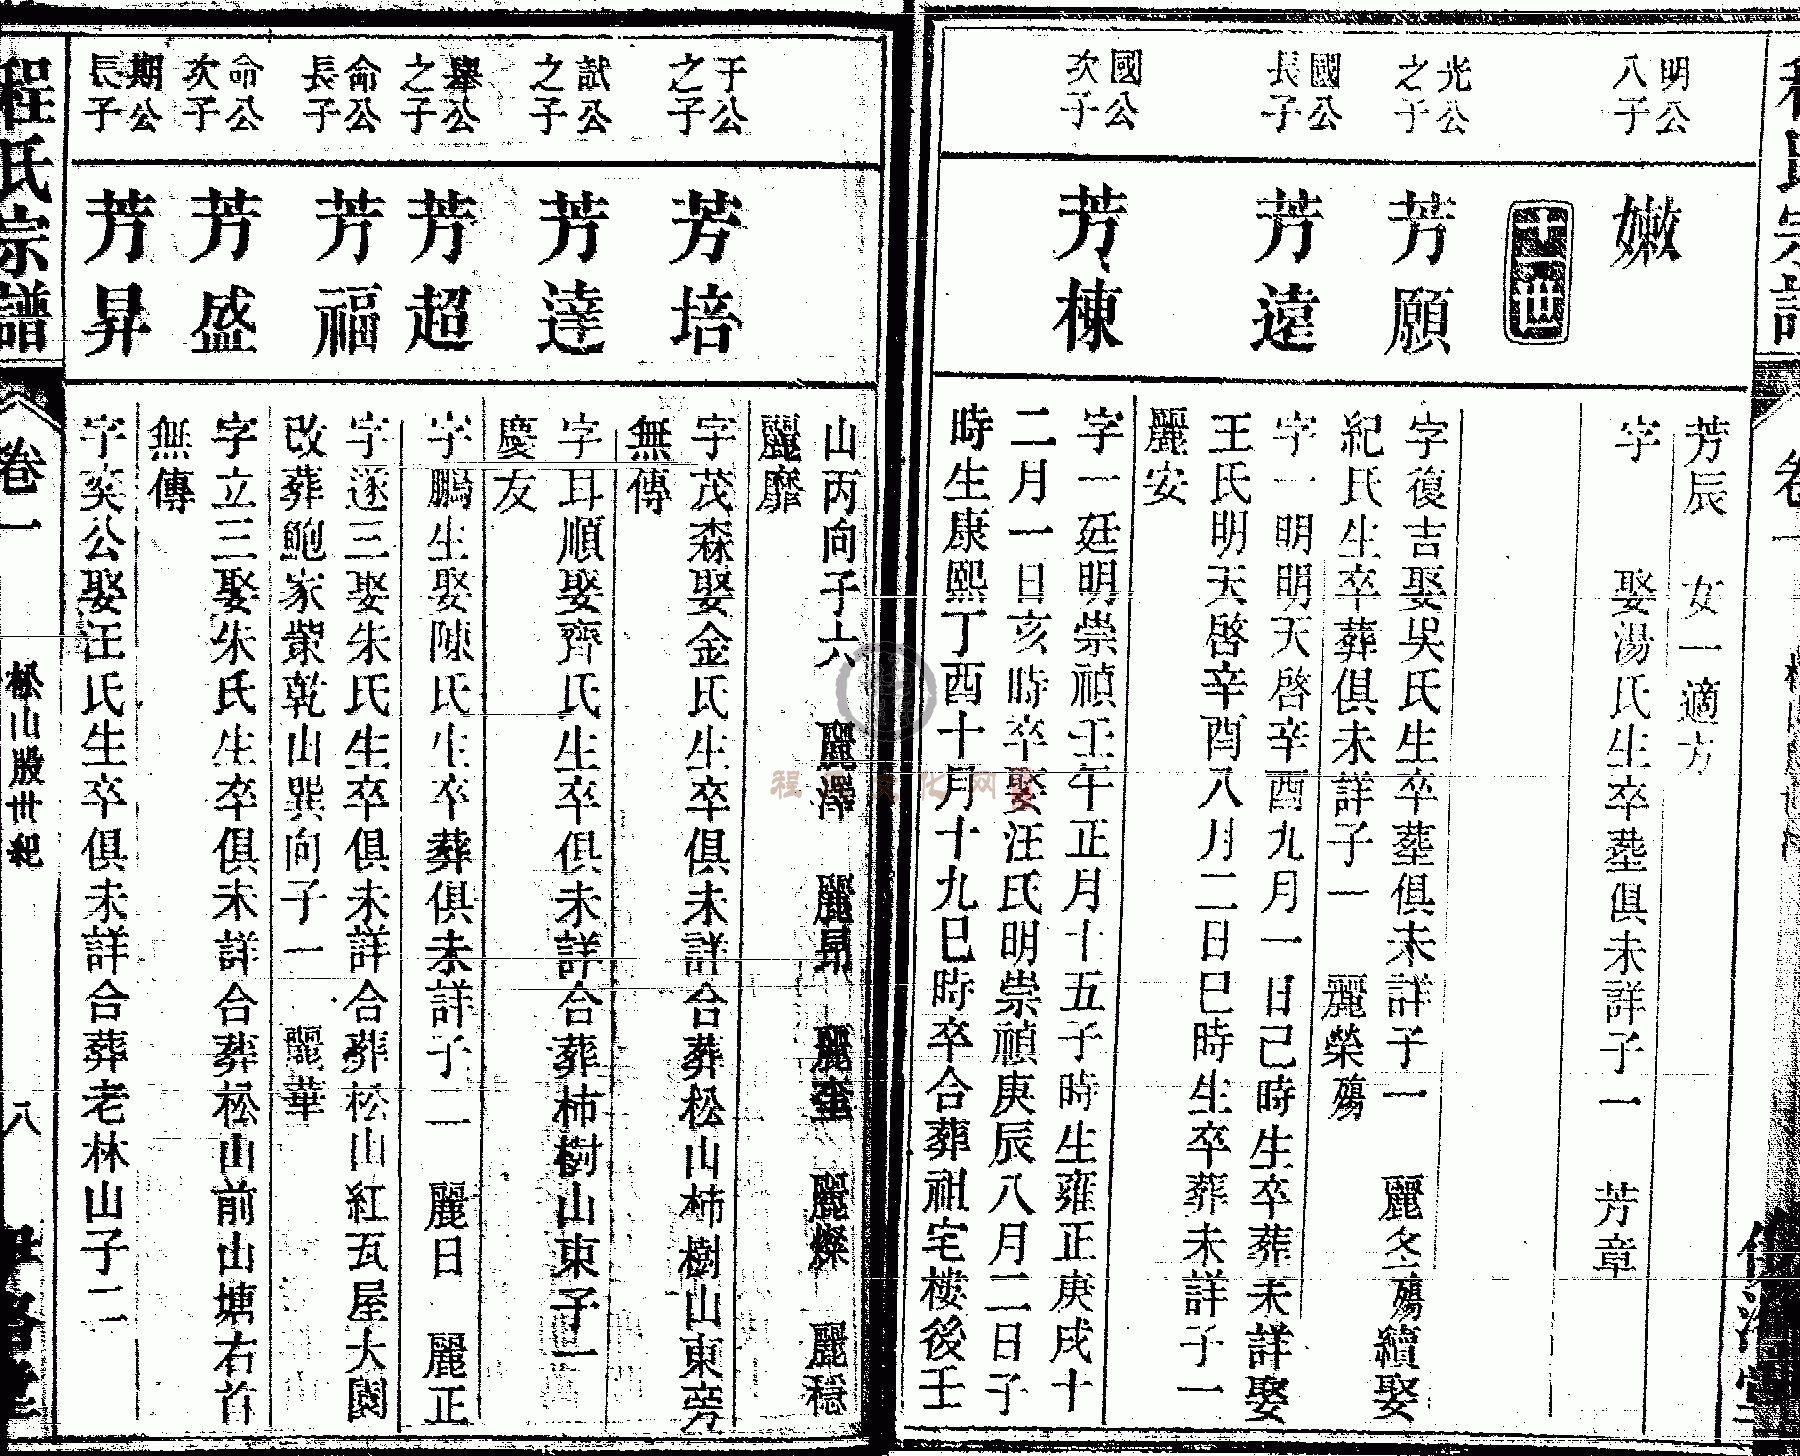 明公
八子
嫩
芳辰 女一適方
字 娶湯氏生卒塟俱未詳子一 芳章
光公
之子
芳願
字復吉娶吳氏生卒塟俱未詳子一 麗冬殤續娶
紀氏生卒葬俱未詳子一 麗榮殤
國公
長子
芳遠
字一明明天啓辛酉九月一日己時生卒葬未詳娶
王氏明天啓辛酉八月二日巳時生卒葬未詳子一
麗安
國公
次子
芳棟
字一廷明崇禎壬午正月十五子時生雍正庚戌十
二月一日亥時卒娶汪氏明崇禎庚辰八月二日子
時生康熙丁酉十月十九巳時卒合葬祖宅樓後壬
山丙向子六 麗澤 麗昴 麗奎 麗燦 麗穩
麗靡
于公
之子
芳培
字茂森娶金氏生卒俱未詳合葬松山柿樹山東旁
無傳
試公
之子
芳達
字耳順娶齊氏生卒俱未詳合葬柿樹山東子一
慶友
舉公
之子
芳超
字鵬生娶陳氏生卒葬俱未詳子二 麗日 麗正
命公
長子
芳福
字遂三娶朱氏生卒俱未詳合葬松山紅瓦屋大園
改葬鮑家棠乾山巽向子一 麗華
命公
次子
芳盛
字立三娶朱氏生卒俱未詳合葬松山前山塘右首
無傳
期公
長子
芳昇
字奕公娶汪氏生卒俱未詳合葬老林山子二
程氏宗譜
卷一
松山股世紀
八